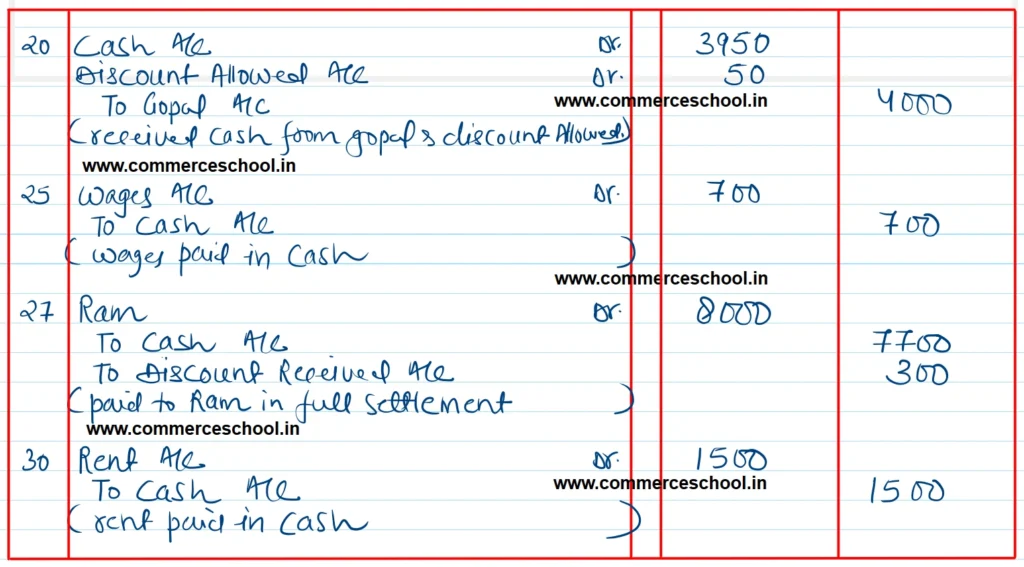 20 Cash A/c Dr. 3950
Discount Allowed A/c Dr. 50
To Gopal A/C www.commerceschool.in 4000
(received cash from gopal & discount Allowed.)
www.commerceschool.in
25 Wages A/c Dr. 700
To Cash A/c 700
(wages paid in Cash)
www.commerceschool.in
27 Ram Dr. 8000
To Cash A/c 7700
To Discount Received A/c 300
(paid to Ram in full Settlement)
www.commerceschool.in
30 Rent A/c Dr. 1500
To Cash A/c www.commerceschool.in 1500
(rent paid in Cash)